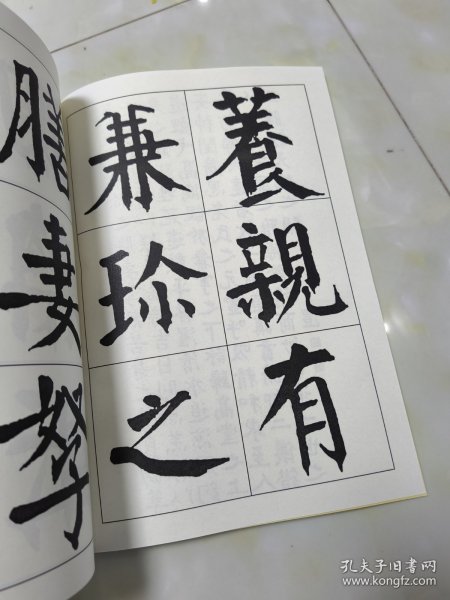 養親有
兼珎之
膳妻孥
孔夫子旧书网
www.kongfz.com